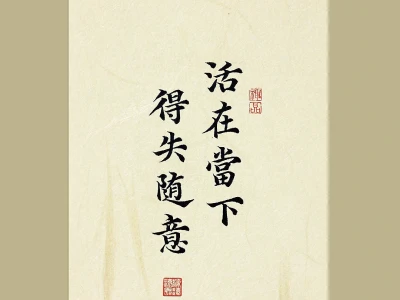 活在當下
得失随意